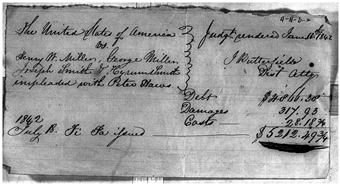 The United State of America
vs.
Henry W. Miller, George Miller
Joseph Smith & Hyrum Smith
impleaded with Peter Haws
1842
July 18. Fi Fa issued
Judgt rendered June 1842
J Butterfield
Dist Atty
Debt $4866.38
Damages 317.93
Costs 28.18¾
$5212.49¾